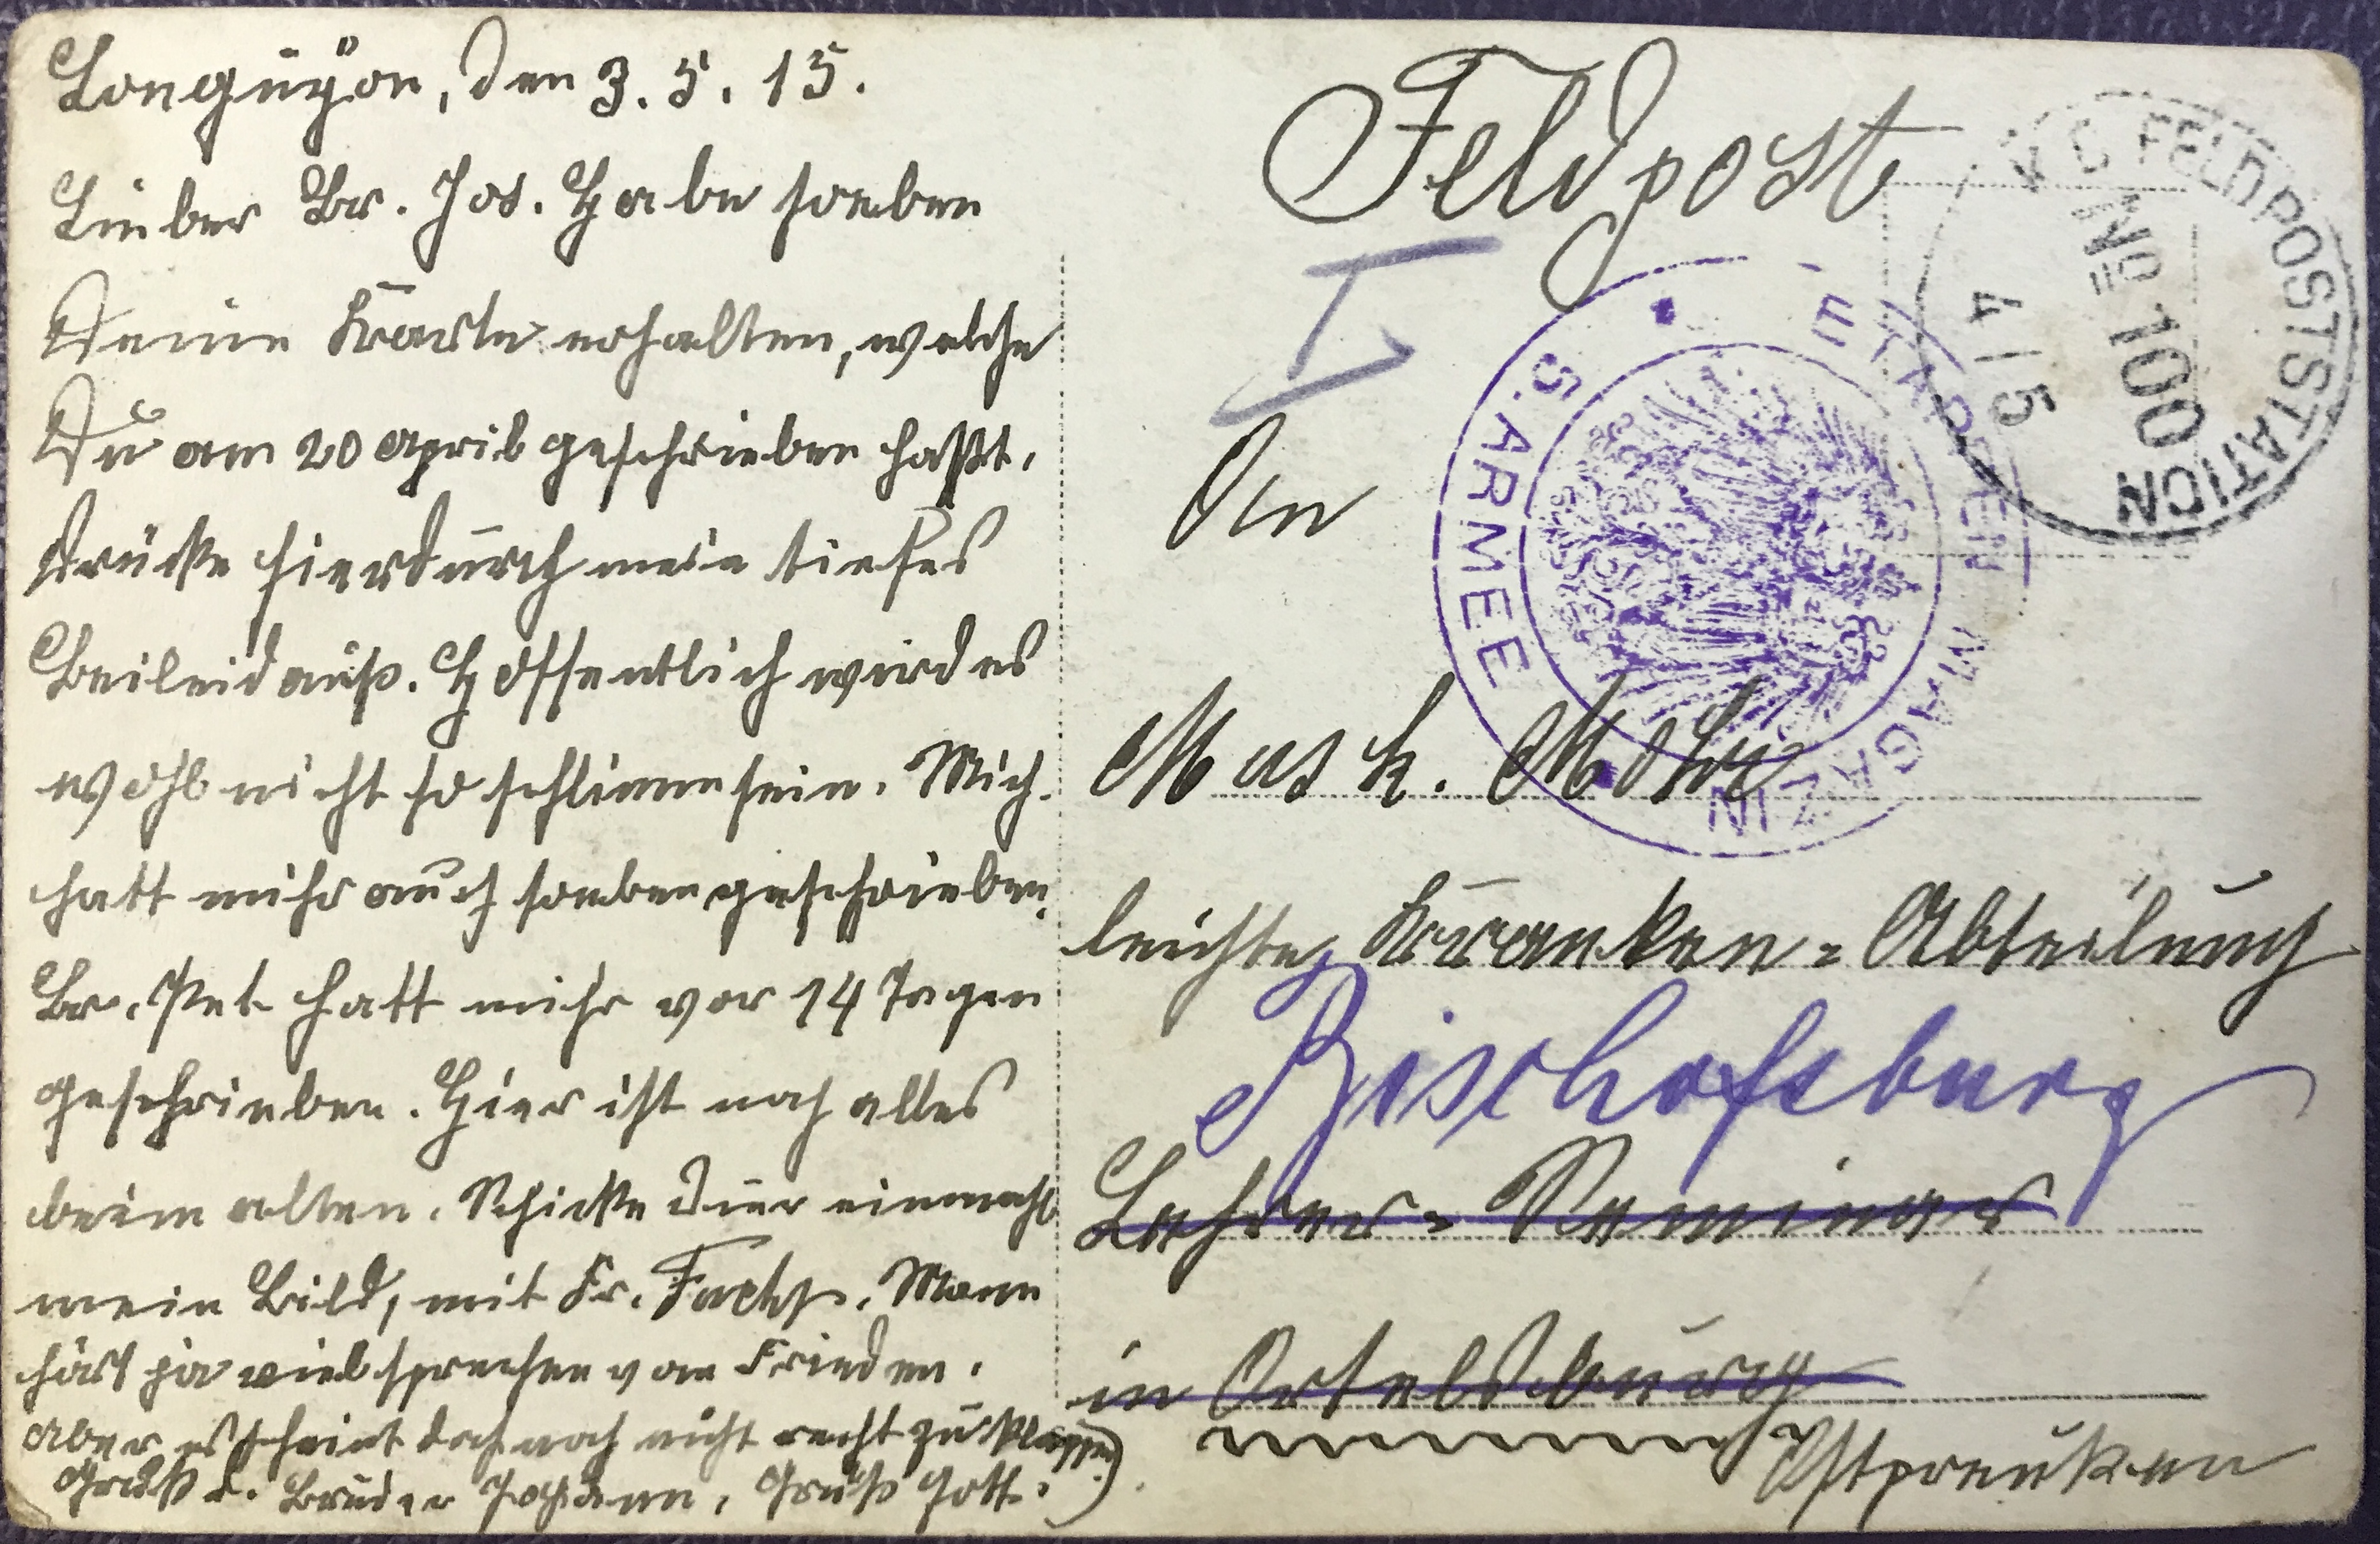 Longuyon, den 3. 5. 15.
Lieber Br. Jos. Habe soeben
Deine Karte erhalten, welche
Du am 20 April geschrieben haßt.
drücke hierdurch mein tiefes
Beileid auß. Hoffentlich wird es
wohl nicht so schlimm sein. Mich.
hatt mihr auch soeben geschrieben.
Br. Pet. hatt mihr vor 14 Tagen
geschrieben. Hier ist noch alles
beim alten. Schicke Dier einmahl
mein Bild, mit Fr. Fuchs. Mann
hört ja viel sprechen von Frieden.
Aber es scheint doch noch nicht recht zu klappen.
Gruß d. Bruder Johann. Grüß Gott.
Feldpost
I
An
Musk. Mohr
leichte Kranken=Abteilung
Bischofsburg
Lehrer=Seminar
in Ortelsburg
Ostpreußen
K.D. FELDPOSTSTATION
No 100
4/5
ETAPPEN MAGAZIN
5. ARMEE